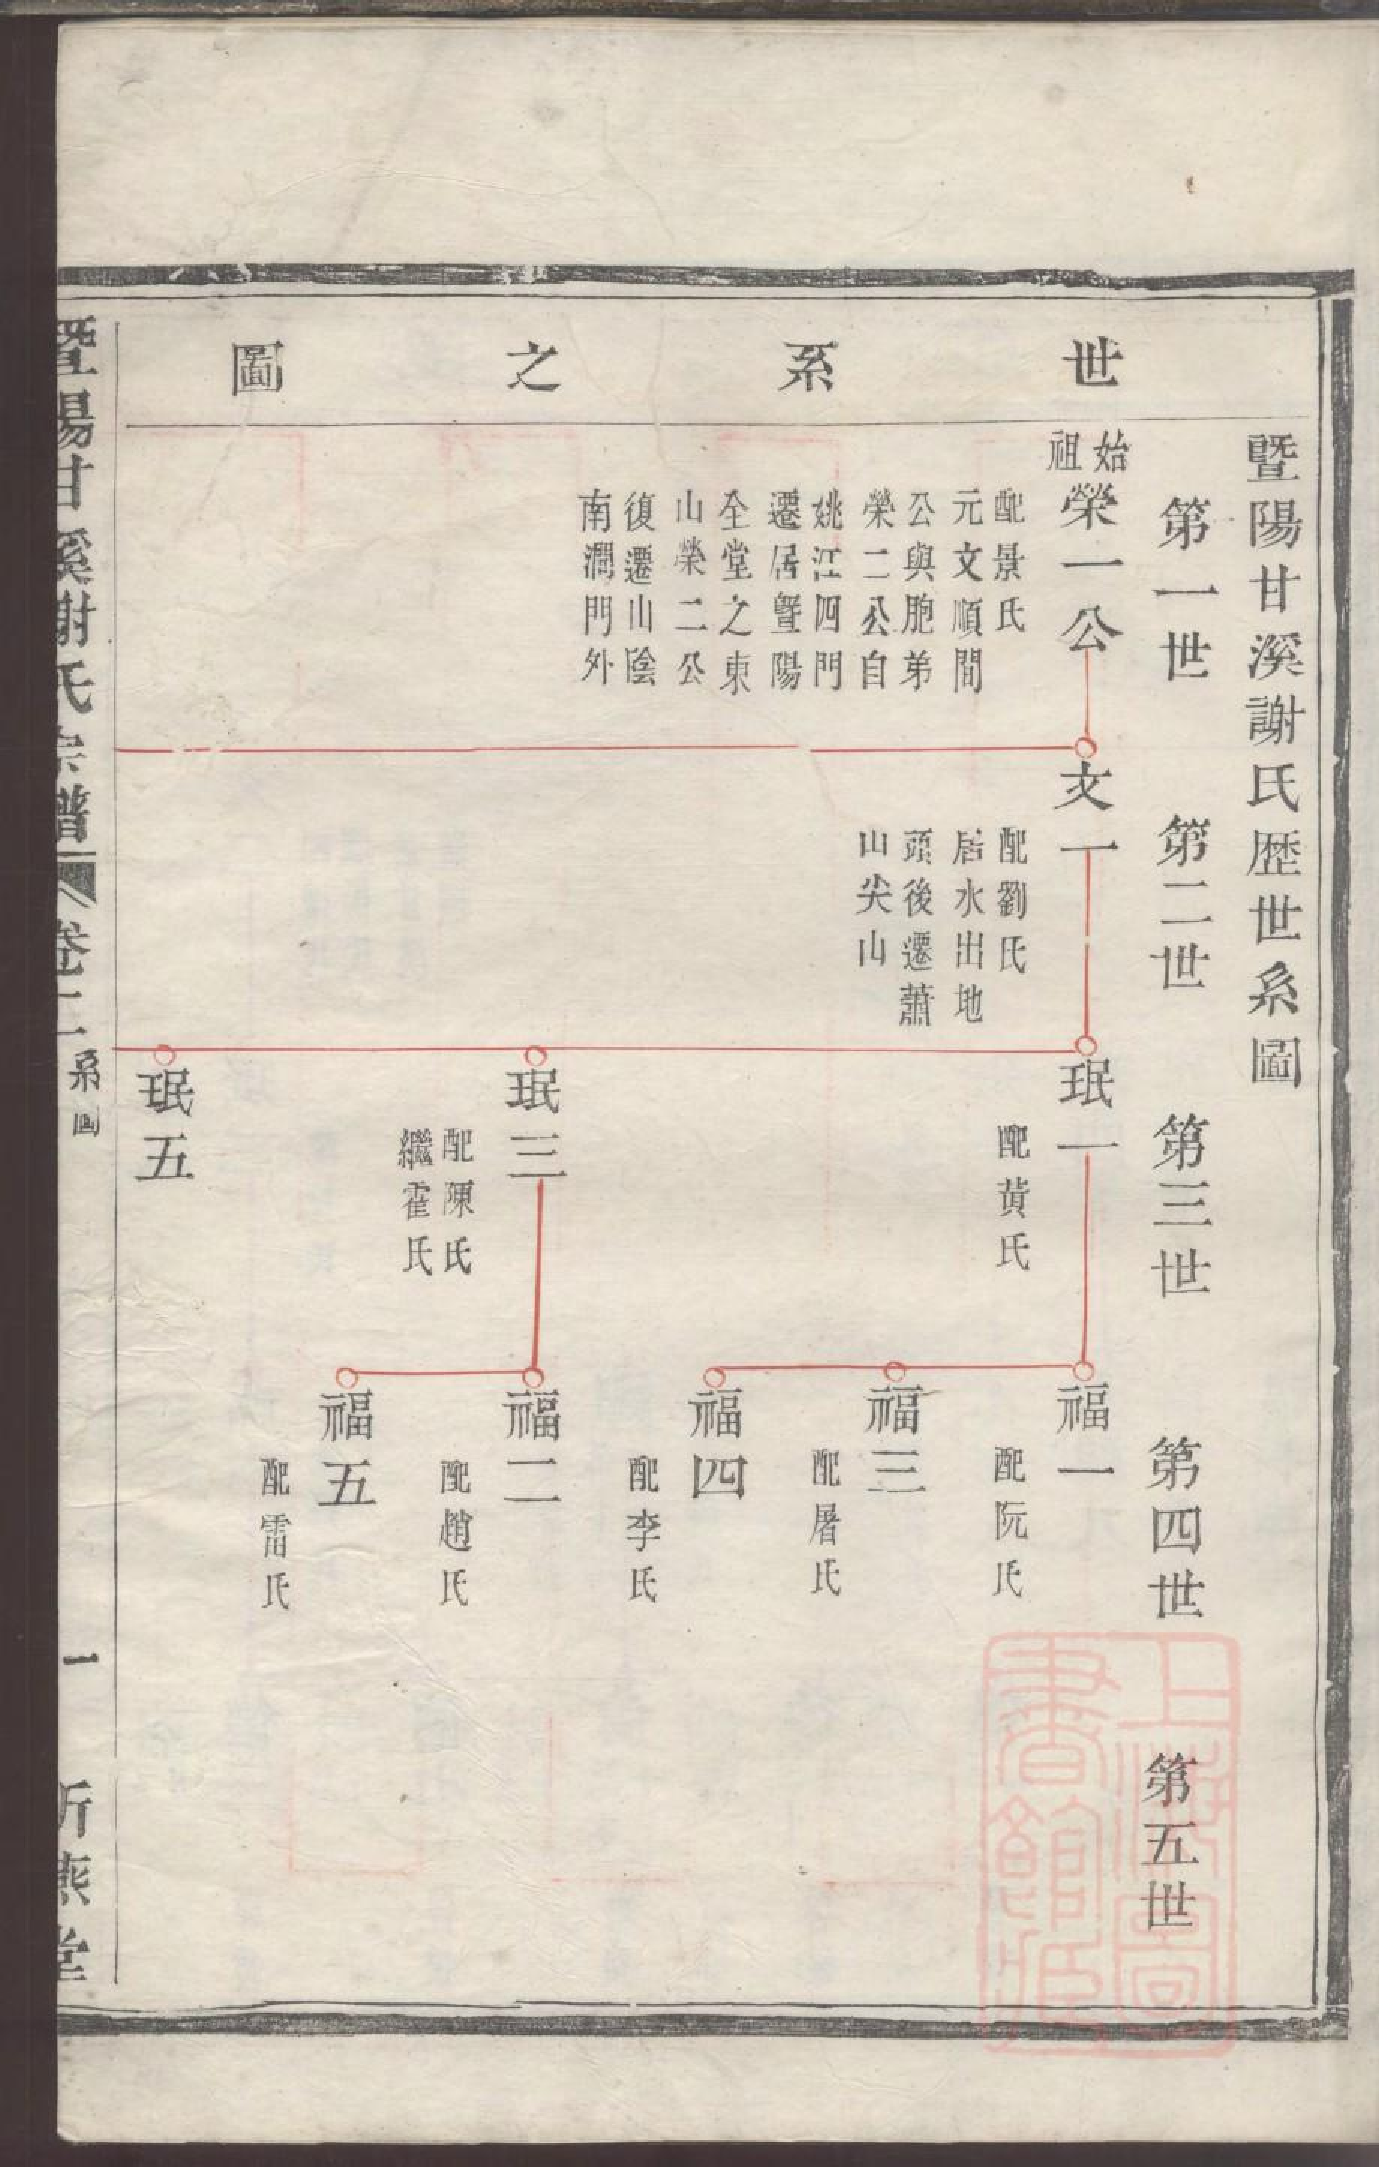 世系之圖
暨陽甘溪謝氏歷世系圖
第一世
第二世
第三世
第四世
第五世
始祖
榮一公
配景氏
元文順間
公與胞弟
榮二公自
姚江四門
遷居暨陽
全堂之東
山榮二公
復遷山陰
南澗門外
文一
配劉氏
居水出地
頭後遷蕭
山尖山
珉一
配黄氏
珉三
配陳氏
繼霍氏
珉五
福一
配阮氏
福三
配屠氏
福四
配李氏
福二
配趙氏
福五
配雷氏
暨陽甘溪謝氏宗譜
卷二
系圖
一
上海圖書館藏